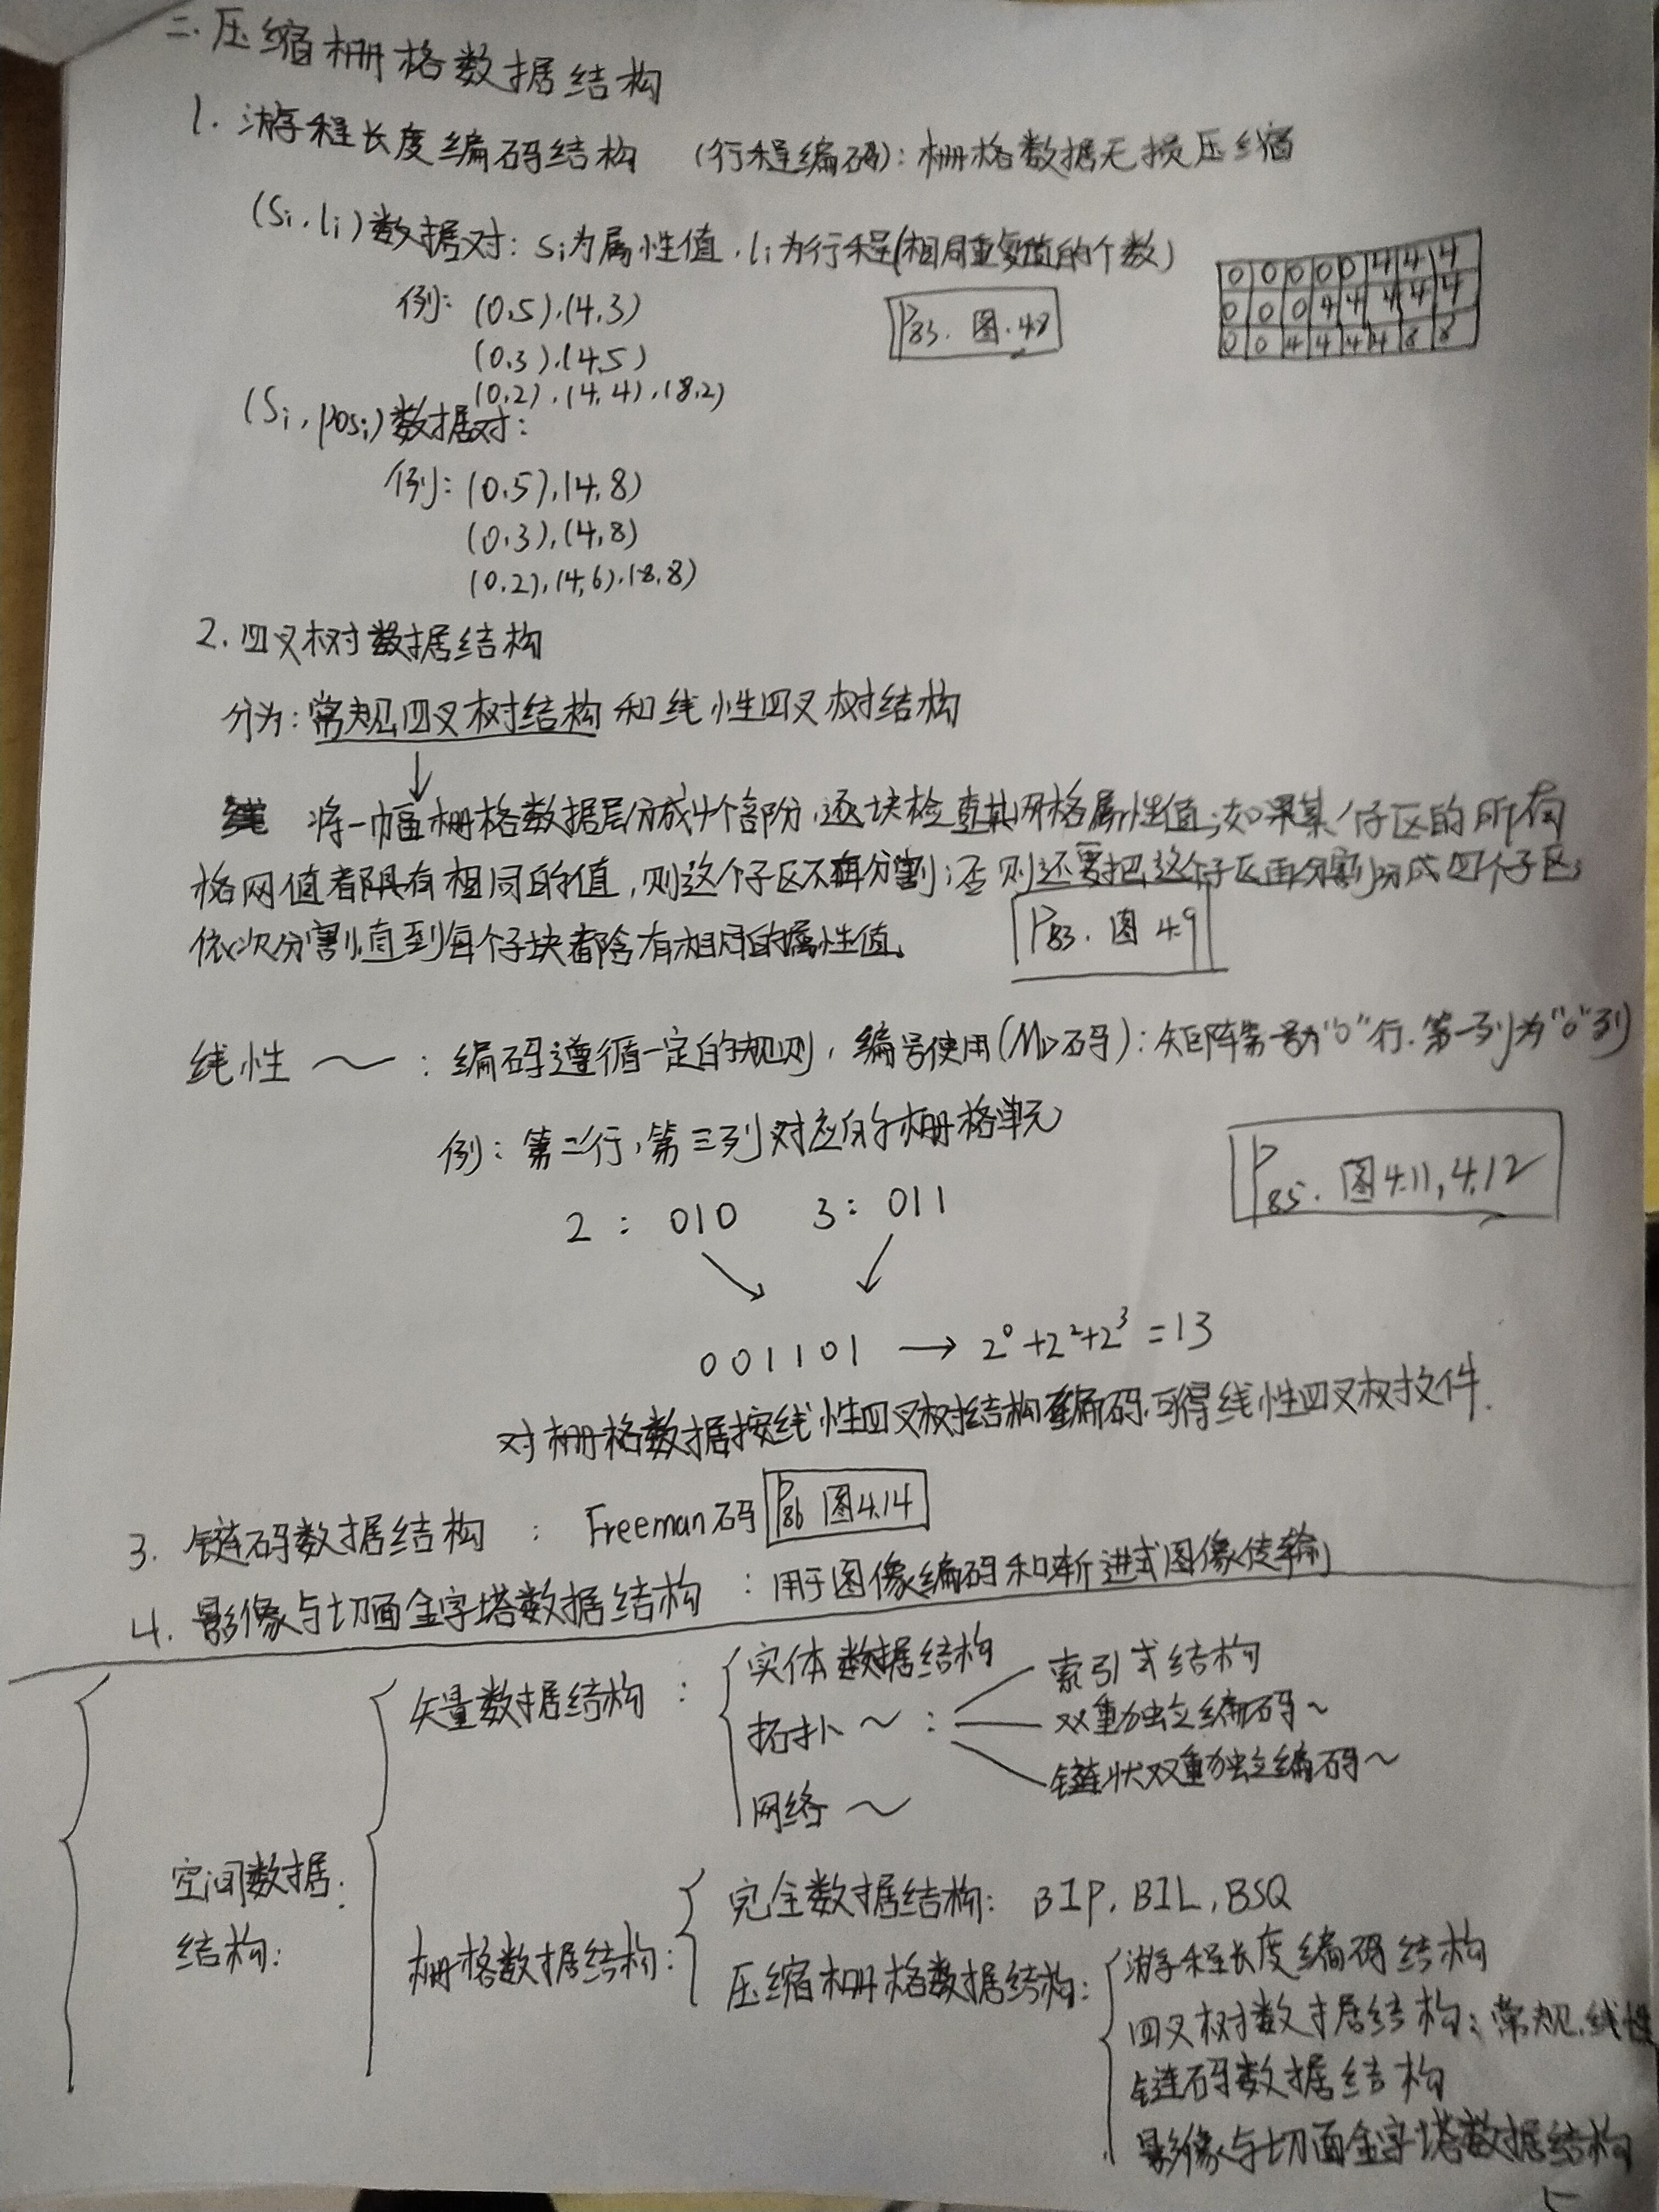 二.压缩栅格数据结构
1. 游程长度编码结构 (行程编码):栅格数据无损压缩
(Si,li)数据对: Si为属性值,li为行程(相同重复值的个数)
0 0 0 0 0 4 4 4
0 0 0 4 4 4 4 4
0 0 4 4 4 4 8 8
例: (0,5),(4,3)
P83. 图.4.8
(0,3),(4,5)
(0,2),(4,4),(8,2)
(Si,posi)数据对:
例: (0,5),(4,8)
(0,3),(4,8)
(0,2),(4,6),(8,8)
2. 四叉树数据结构
分为:常规四叉树结构和线性四叉树结构
将一幅栅格数据层分成4个部分,逐块检查其网格属性值;如果某个子区的所有
格网值都具有相同的值,则这个子区不再分割;否则还要把这个子区再分割分成四个子区;
依次分割,直到每个子块都含有相同的属性值。
P83. 图4.9
线性~:编码遵循一定的规则,编号使用(MD码):矩阵第一行为"0"行.第一列为"0"列
例:第二行,第三列对应的栅格单元
P85. 图4.11,4.12
2: 010 3: 011
001101 → 2⁰+2²+2³=13
对栅格数据按线性四叉树结构编码,可得线性四叉树文件.
3. 链码数据结构 : Freeman码 P86 图4.14
4. 影像与切面金字塔数据结构 :用于图像编码和渐进式图像传输
空间数据结构:
矢量数据结构 :
实体数据结构
拓扑~ :
索引式结构
双重独立编码~
链状双重独立编码~
网络~
栅格数据结构:
完全数据结构: BIP, BIL, BSQ
压缩栅格数据结构:
游程长度编码结构
四叉树数据结构:常规,线性
链码数据结构
影像与切面金字塔数据结构